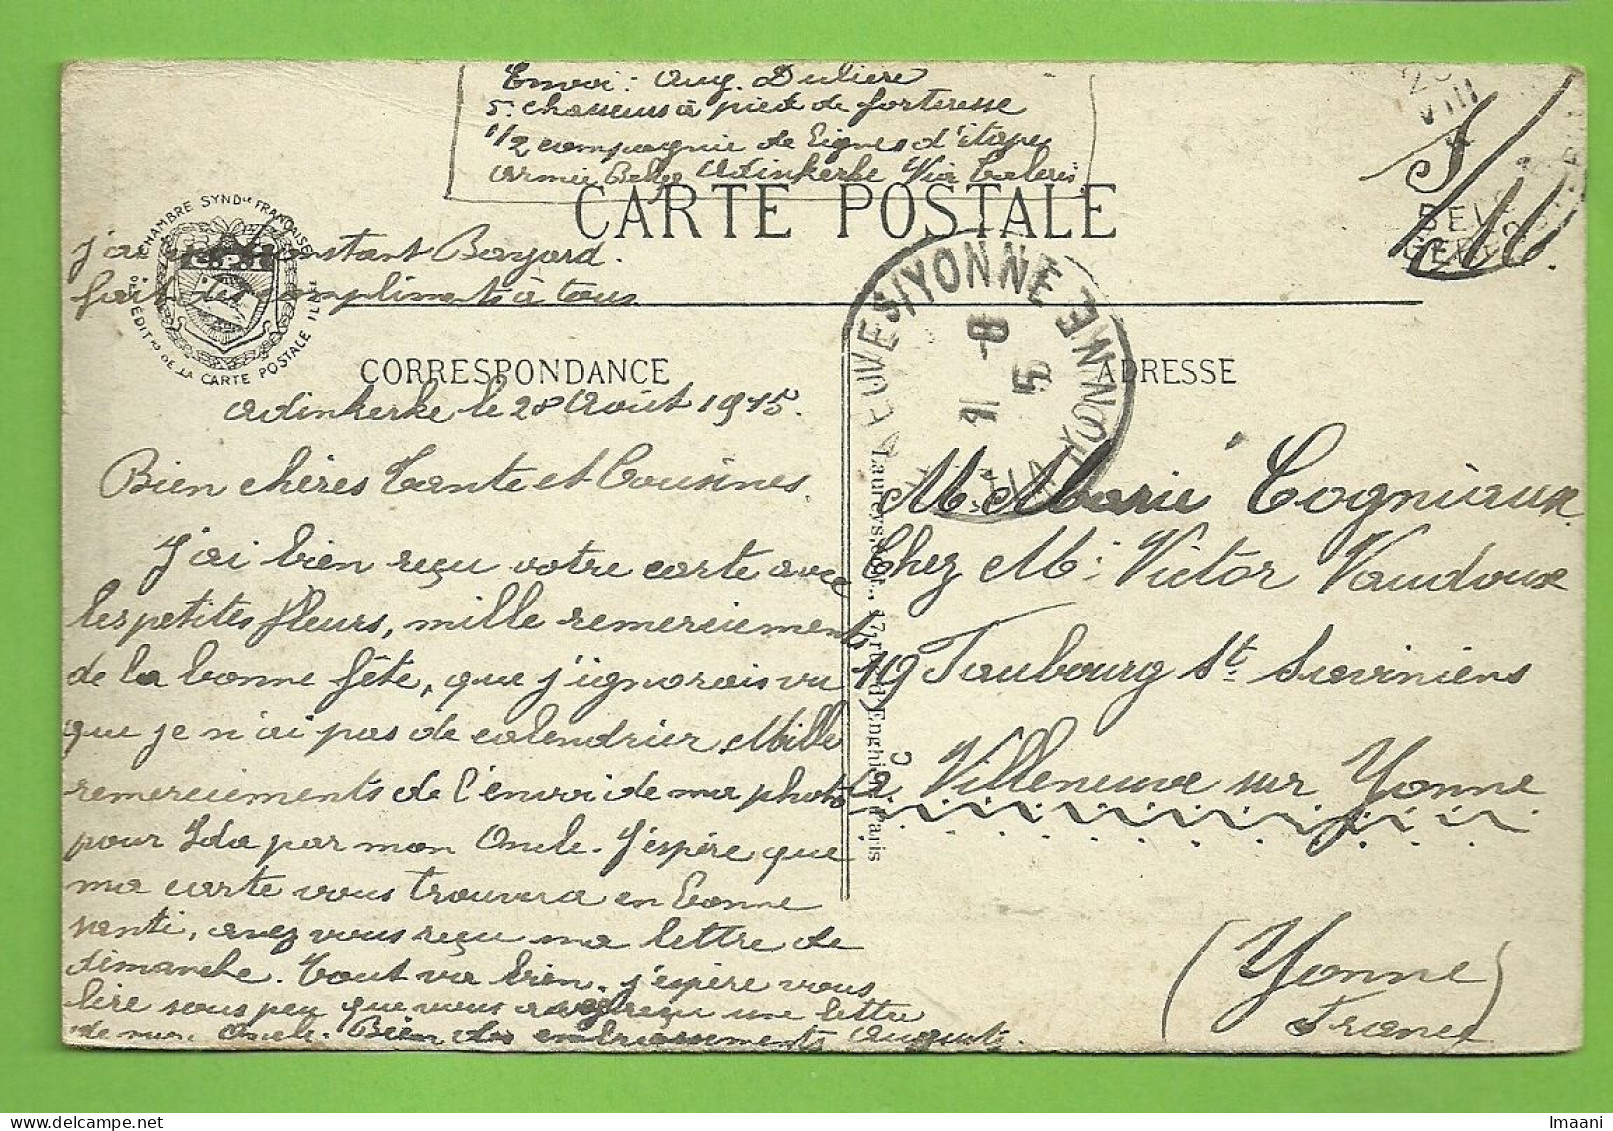 Envoi : Aug. Duliere
5e chasseurs à pied de forteresse
1/2 compagnie de Lignes d'étapes
Armée Belge Adinkerke Via Calais
CARTE POSTALE
S/M.
CHAMBRE SYNDle FRANÇAISE
DES ÉDITrs DE LA CARTE POSTALE ILLée
J'ai Constant Bayard.
fait des compliments à tous
CORRESPONDANCE
Adinkerke le 28 Août 1915.
Bien chères Tante et Cousines.
J'ai bien reçu votre carte avec
les petites fleurs, mille remerciements
de la bonne fête, que j'ignorais vu
que je n'ai pas de calendrier. Mille
remerciements de l'envoi de ma photo
pour Ida par mon Oncle. J'espère que
ma carte vous trouvera en bonne
santé, avez vous reçu ma lettre de
dimanche. Tout va bien. j'espère vous
lire sous peu que vous avez reçu une lettre
de mon Oncle. Bien des embrassements Auguste.
VILLENEUVE S/YONNE
YONNE
1 -9
15
BELGIË
Laureys, édit., 17, r. d'Enghien, Paris
ADRESSE
M. Marie Cogniaux
Chez M: Victor Vaudoux
19 Faubourg St. Saviniens
à Villeneuve sur Yonne
(Yonne)
France
Imaani